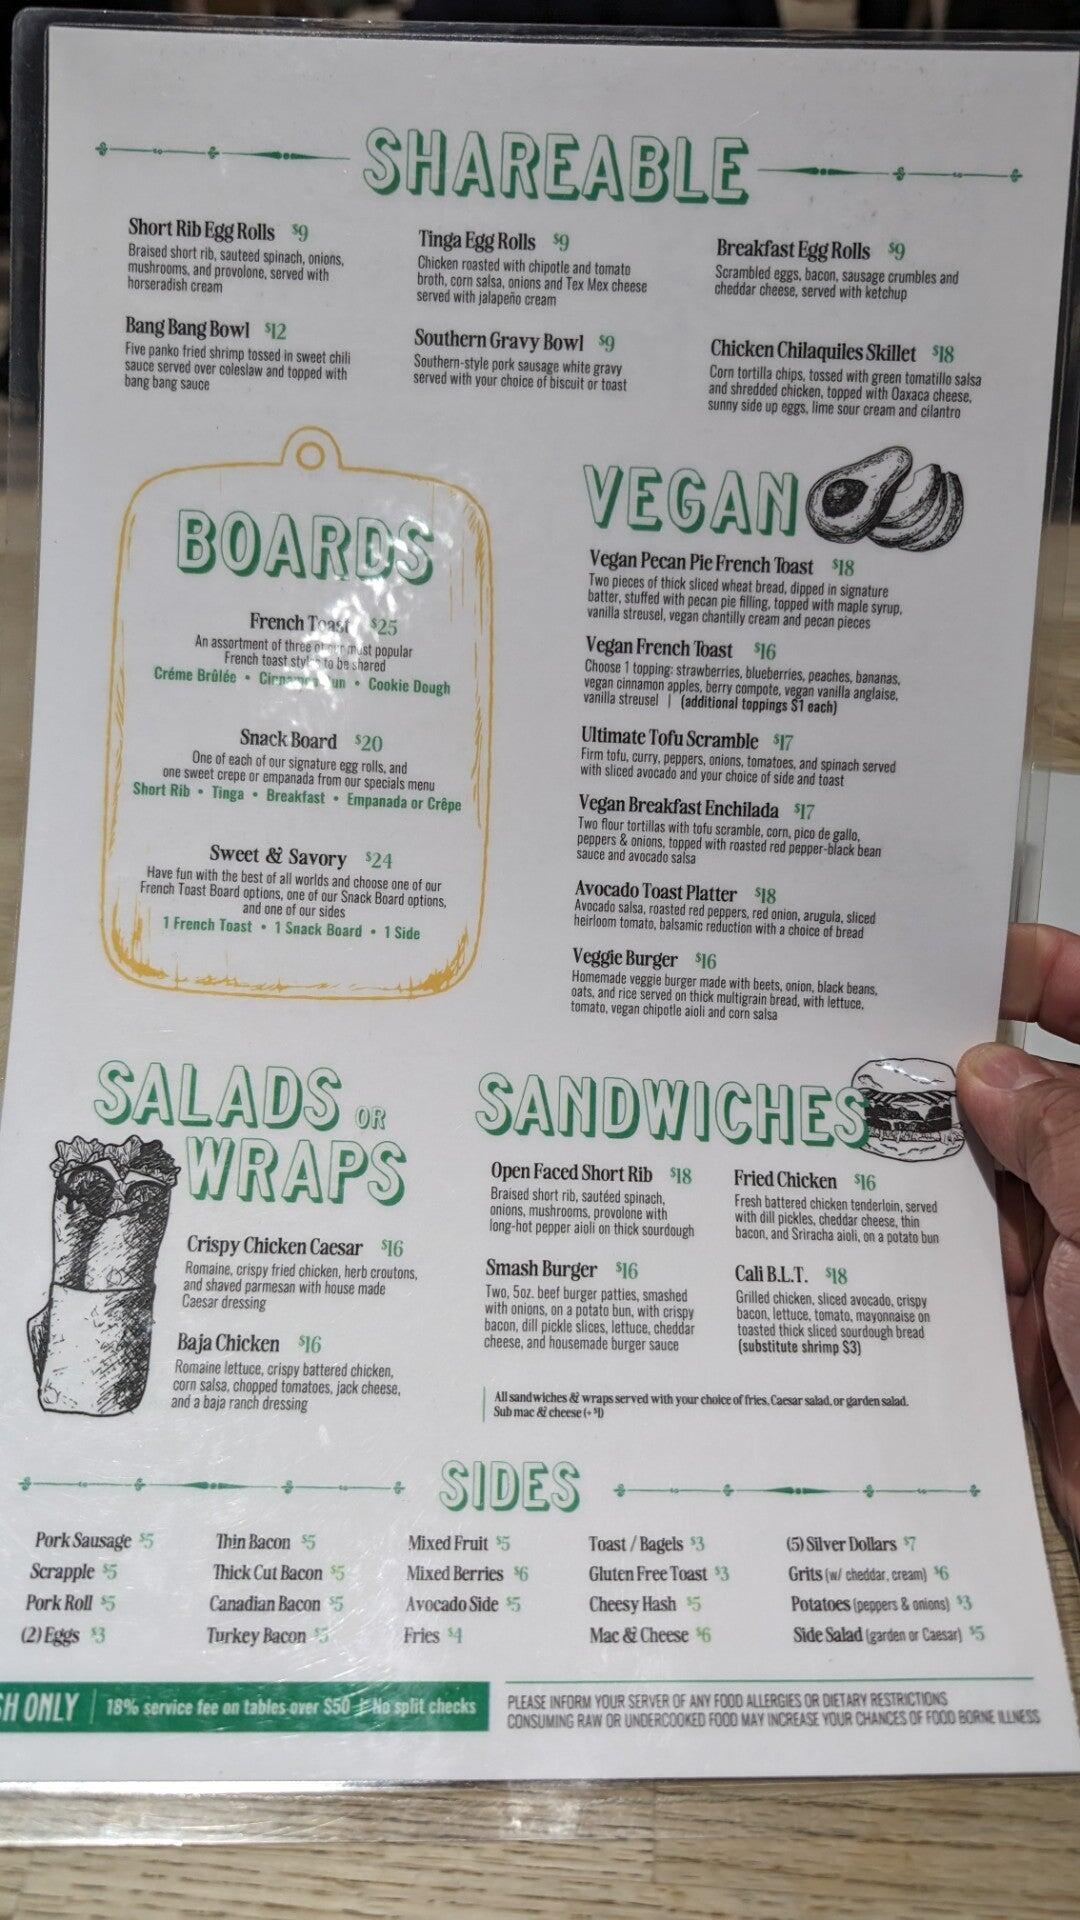 SHAREABLE
Short Rib Egg Rolls $9
Braised short rib, sauteed spinach, onions,
mushrooms, and provolone, served with
horseradish cream
Tinga Egg Rolls $9
Chicken roasted with chipotle and tomato
broth, corn salsa, onions and Tex Mex cheese
served with jalapeño cream
Breakfast Egg Rolls $9
Scrambled eggs, bacon, sausage crumbles and
cheddar cheese, served with ketchup
Bang Bang Bowl $12
Five panko fried shrimp tossed in sweet chili
sauce served over coleslaw and topped with
bang bang sauce
Southern Gravy Bowl $9
Southern-style pork sausage white gravy
served with your choice of biscuit or toast
Chicken Chilaquiles Skillet $18
Corn tortilla chips, tossed with green tomatillo salsa
and shredded chicken, topped with Oaxaca cheese,
sunny side up eggs, lime sour cream and cilantro
BOARDS
French Toast $25
An assortment of three of our most popular
French toast styles to be shared
Créme Brûlée • Cinnamon Bun • Cookie Dough
Snack Board $20
One of each of our signature egg rolls, and
one sweet crepe or empanada from our specials menu
Short Rib • Tinga • Breakfast • Empanada or Crêpe
Sweet & Savory $24
Have fun with the best of all worlds and choose one of our
French Toast Board options, one of our Snack Board options,
and one of our sides
1 French Toast • 1 Snack Board • 1 Side
VEGAN
Vegan Pecan Pie French Toast $18
Two pieces of thick sliced wheat bread, dipped in signature
batter, stuffed with pecan pie filling, topped with maple syrup,
vanilla streusel, vegan chantilly cream and pecan pieces
Vegan French Toast $16
Choose 1 topping: strawberries, blueberries, peaches, bananas,
vegan cinnamon apples, berry compote, vegan vanilla anglaise,
vanilla streusel | (additional toppings $1 each)
Ultimate Tofu Scramble $17
Firm tofu, curry, peppers, onions, tomatoes, and spinach served
with sliced avocado and your choice of side and toast
Vegan Breakfast Enchilada $17
Two flour tortillas with tofu scramble, corn, pico de gallo,
peppers & onions, topped with roasted red pepper-black bean
sauce and avocado salsa
Avocado Toast Platter $18
Avocado salsa, roasted red peppers, red onion, arugula, sliced
heirloom tomato, balsamic reduction with a choice of bread
Veggie Burger $16
Homemade veggie burger made with beets, onion, black beans,
oats, and rice served on thick multigrain bread, with lettuce,
tomato, vegan chipotle aioli and corn salsa
SALADS OR
WRAPS
Crispy Chicken Caesar $16
Romaine, crispy fried chicken, herb croutons,
and shaved parmesan with house made
Caesar dressing
Baja Chicken $16
Romaine lettuce, crispy battered chicken,
corn salsa, chopped tomatoes, jack cheese,
and a baja ranch dressing
SANDWICHES
Open Faced Short Rib $18
Braised short rib, sautéed spinach,
onions, mushrooms, provolone with
long-hot pepper aioli on thick sourdough
Fried Chicken $16
Fresh battered chicken tenderloin, served
with dill pickles, cheddar cheese, thin
bacon, and Sriracha aioli, on a potato bun
Smash Burger $16
Two, 5oz. beef burger patties, smashed
with onions, on a potato bun, with crispy
bacon, dill pickle slices, lettuce, cheddar
cheese, and housemade burger sauce
Cali B.L.T. $18
Grilled chicken, sliced avocado, crispy
bacon, lettuce, tomato, mayonnaise on
toasted thick sliced sourdough bread
(substitute shrimp $3)
All sandwiches & wraps served with your choice of fries, Caesar salad, or garden salad.
Sub mac & cheese (+ $1)
SIDES
Pork Sausage $5
Scrapple $5
Pork Roll $5
(2) Eggs $3
Thin Bacon $5
Thick Cut Bacon $5
Canadian Bacon $5
Turkey Bacon $5
Mixed Fruit $5
Mixed Berries $6
Avocado Side $5
Fries $4
Toast / Bagels $3
Gluten Free Toast $3
Cheesy Hash $5
Mac & Cheese $6
(5) Silver Dollars $7
Grits (w/ cheddar, cream) $6
Potatoes (peppers & onions) $3
Side Salad (garden or Caesar) $5
SH ONLY | 18% service fee on tables over $50 | No split checks
PLEASE INFORM YOUR SERVER OF ANY FOOD ALLERGIES OR DIETARY RESTRICTIONS
CONSUMING RAW OR UNDERCOOKED FOOD MAY INCREASE YOUR CHANCES OF FOOD BORNE ILLNESS